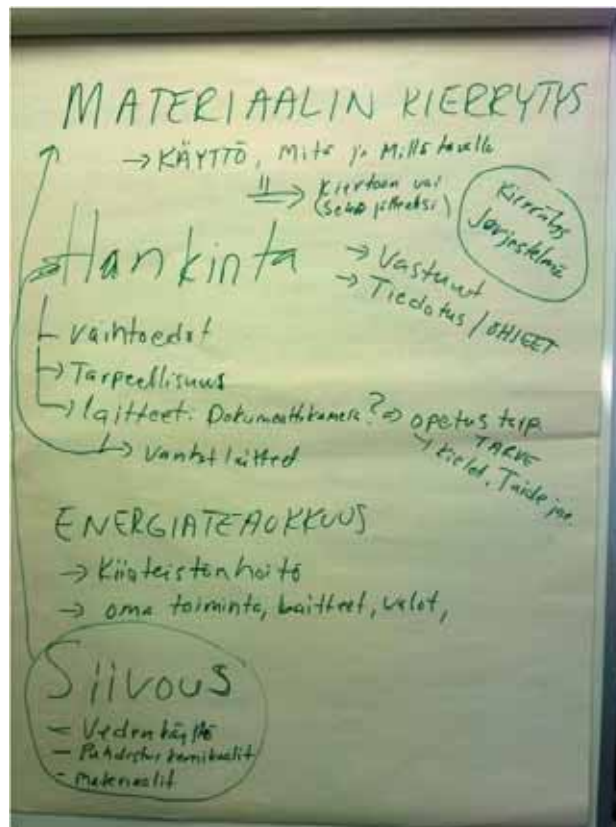 MATERIAALIN KIERRYTYS
→ KÄYTTÖ, Mitä ja Millä tavalla
⇒ Kiertoon vai
(Seka jätteeksi)
Kierrätys
Järjestelmä
Hankinta
→ Vastuut
→ Tiedotus / OHJEET
vaihtoedot
→ Tarpeellisuus
→ laitteet: Dokumenttikamera? ⇒ opetus
TARVE
→ vanhat laitteet
→ Kielet, Taide
ENERGIATEAOKKUUS
→ Kiinteistönhoito
→ oma toiminta, laitteet, valot,
Siivous
- Vedenkäyttö
- Puhdistus kemikaalit
- Materiaalit